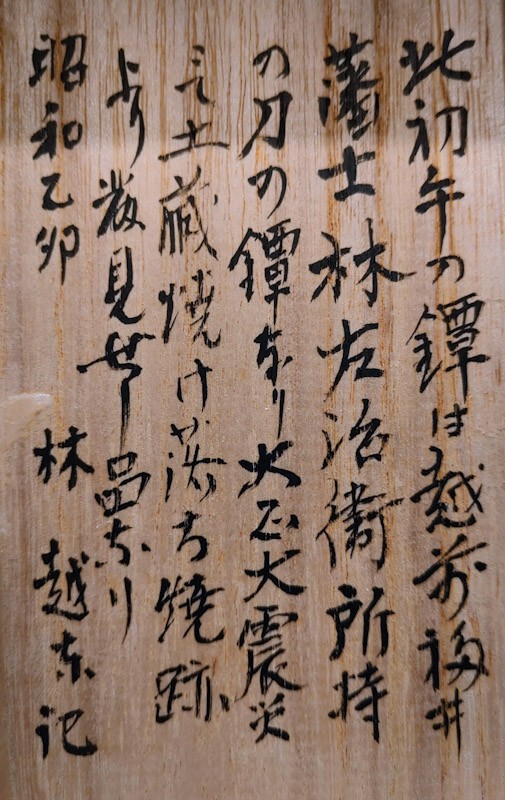 此初午の鐔は越前福井
藩士林左治衛所持
の刀の鐔なり大正大震災
土蔵焼け落ち焼跡
より発見せし品なり
昭和乙卯 林 越東記